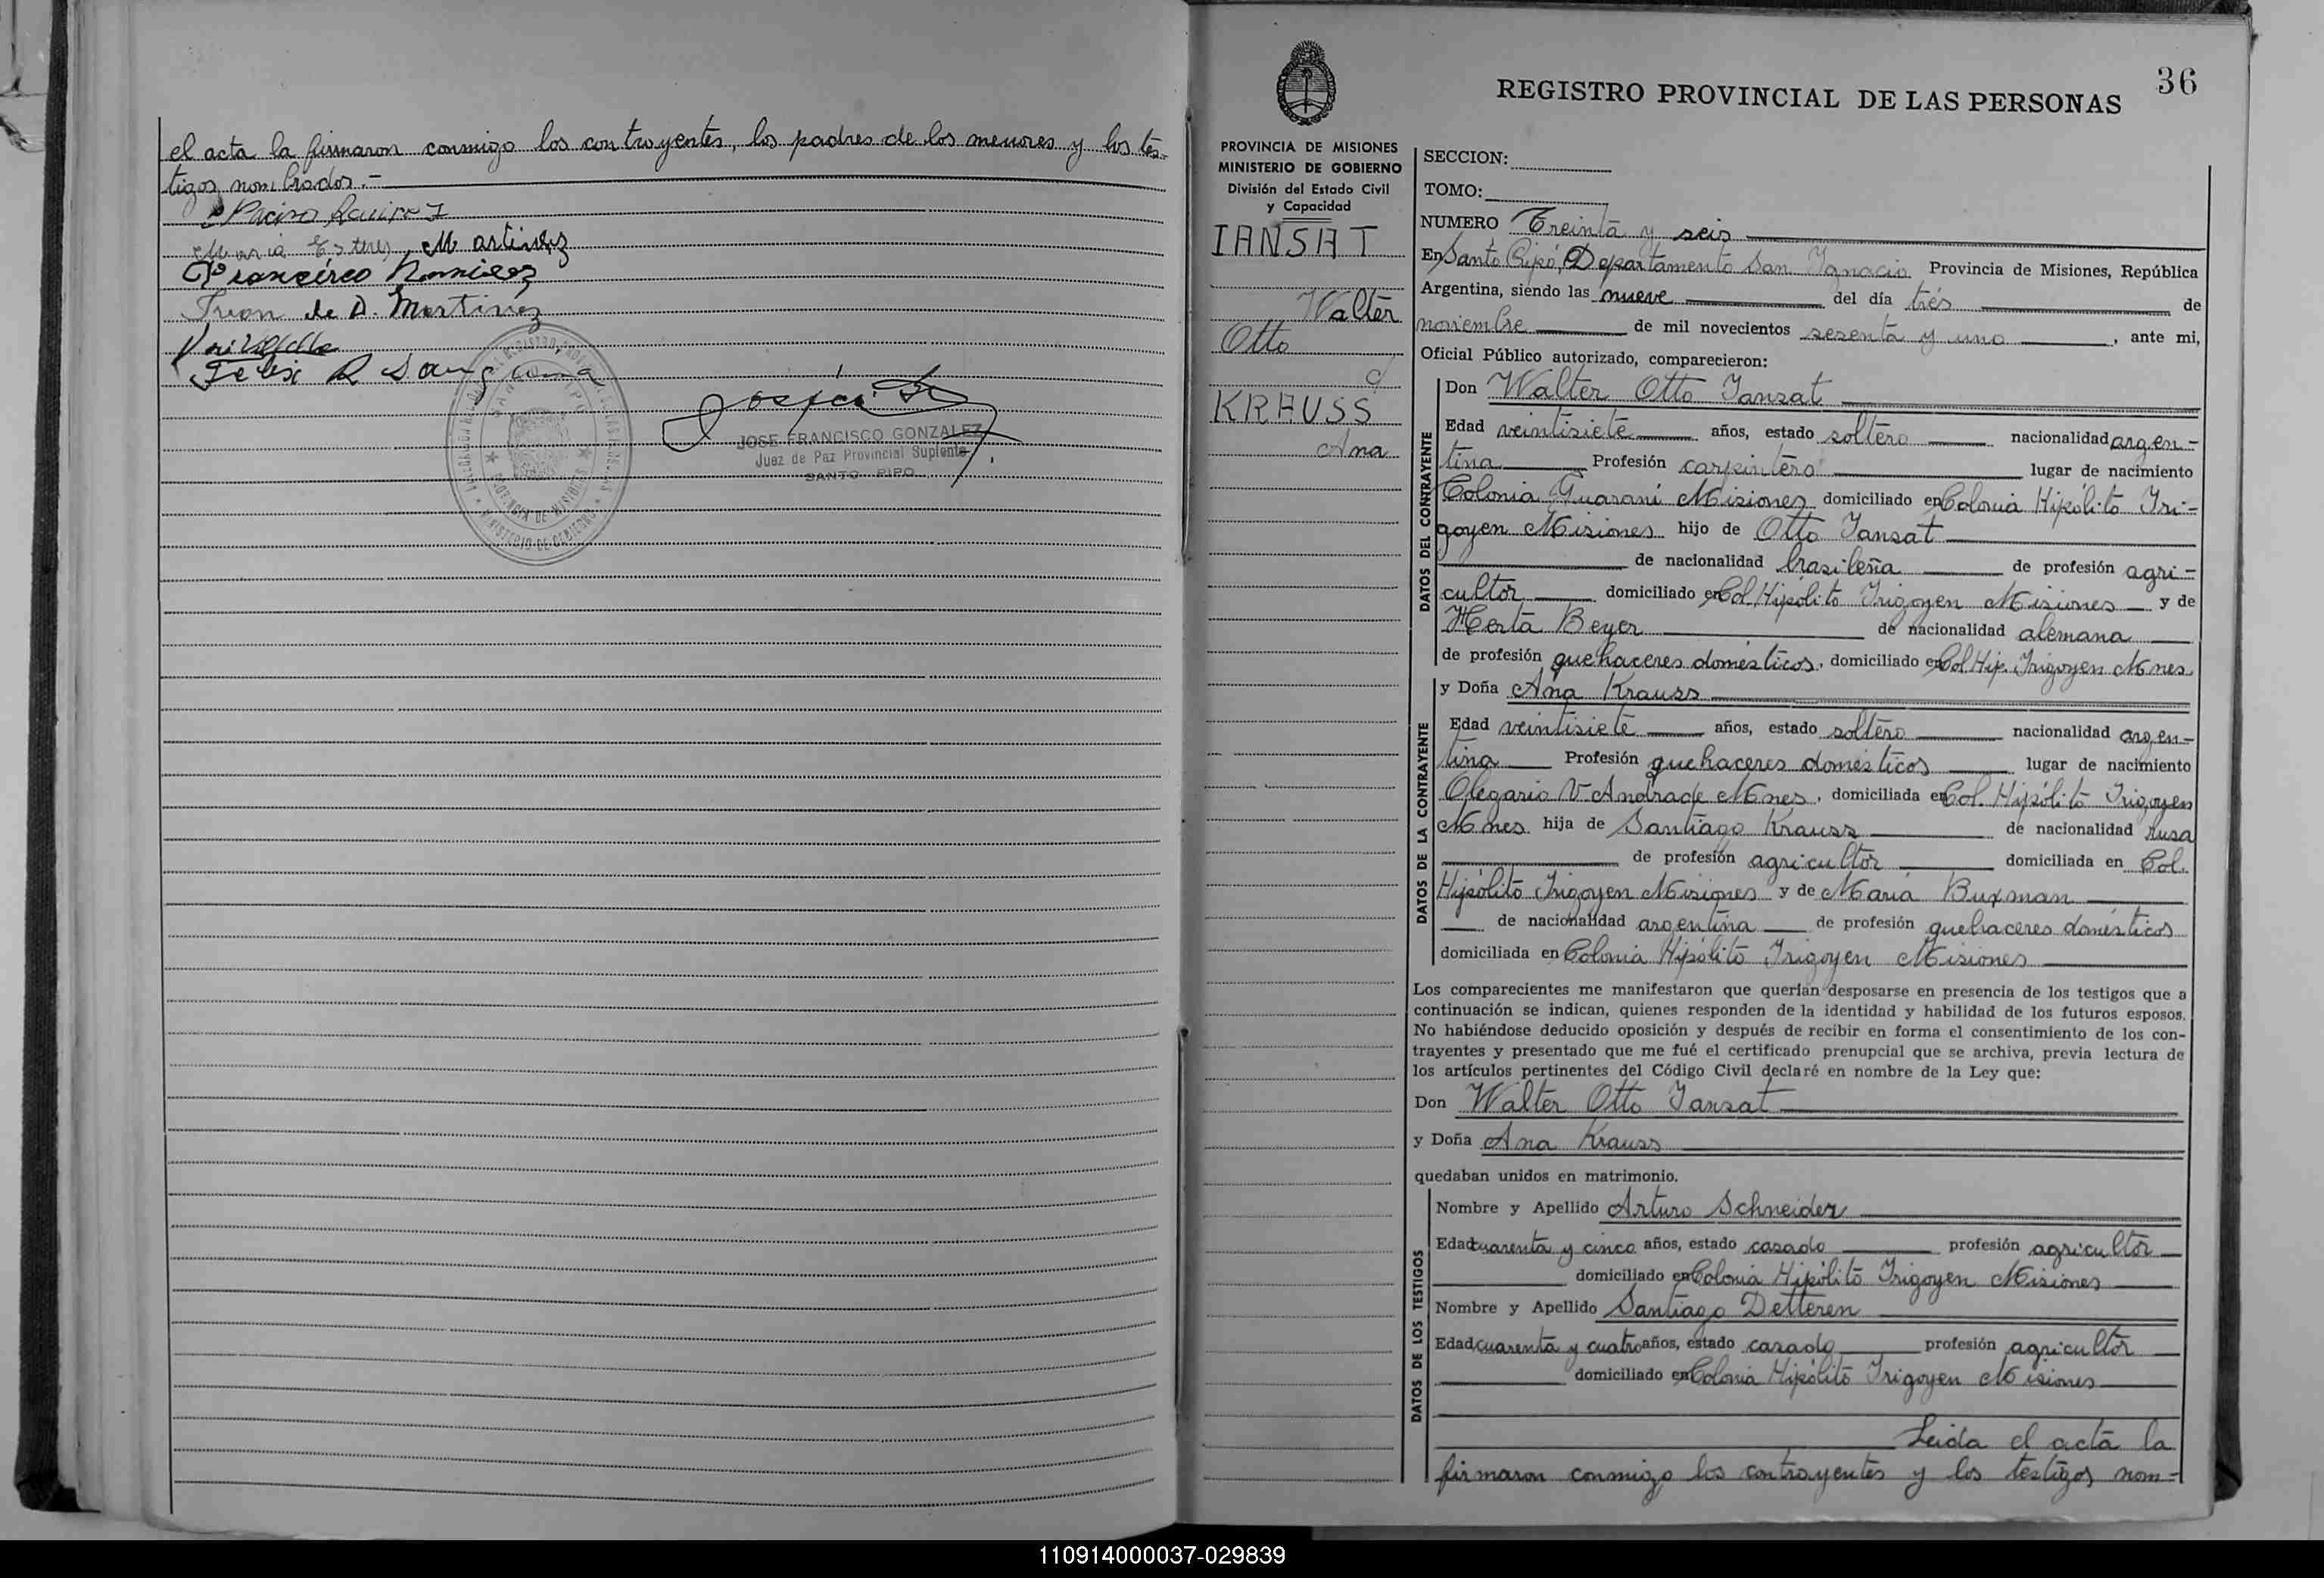 el acta la firmaron conmigo los contrayentes, los padres de los menores y los tes-
tigos nombrados.-
Maria Esther Martinez
Francisco Ramirez
Juan de D. Martinez
Felix R
JOSE FRANCISCO GONZALEZ
Juez de Paz Provincial Suplente
SANTO PIPO
PROVINCIA DE MISIONES
MINISTERIO DE GOBIERNO
División del Estado Civil
y Capacidad
IANSAT
Walter
Otto
c/
KRAUSS
Ana
36
REGISTRO PROVINCIAL DE LAS PERSONAS
SECCION:
TOMO:
NUMERO Treinta y seis
En Santo Pipó, Departamento San Ignacio Provincia de Misiones, República
Argentina, siendo las nueve del día trés de
noviembre de mil novecientos sesenta y uno, ante mi,
Oficial Público autorizado, comparecieron:
DATOS DEL CONTRAYENTE
Don Walter Otto Iansat
Edad veintisiete años, estado soltero nacionalidad argen-
tina Profesión carpintero lugar de nacimiento
Colonia Guaraní Misiones domiciliado en Colonia Hipólito Iri-
goyen Misiones hijo de Otto Iansat
de nacionalidad brasileña de profesión agri-
cultor domiciliado en Col. Hipólito Irigoyen Misiones y de
Herta Beyer de nacionalidad alemana
de profesión quehaceres domésticos, domiciliado en Col. Hip. Irigoyen Mnes
DATOS DE LA CONTRAYENTE
y Doña Ana Krauss
Edad veintisiete años, estado soltero nacionalidad argen-
tina Profesión quehaceres domésticos lugar de nacimiento
Olegario V Andrade Mnes, domiciliada en Col. Hipólito Irigoyen
Mnes hija de Santiago Krauss de nacionalidad rusa
de profesión agricultor domiciliada en Col.
Hipólito Irigoyen Misiones y de María Buxman
de nacionalidad argentina de profesión quehaceres domésticos
domiciliada en Colonia Hipólito Irigoyen Misiones
Los comparecientes me manifestaron que querían desposarse en presencia de los testigos que a
continuación se indican, quienes responden de la identidad y habilidad de los futuros esposos.
No habiéndose deducido oposición y después de recibir en forma el consentimiento de los con-
trayentes y presentado que me fué el certificado prenupcial que se archiva, previa lectura de
los artículos pertinentes del Código Civil declaré en nombre de la Ley que:
Don Walter Otto Iansat
y Doña Ana Krauss
quedaban unidos en matrimonio.
DATOS DE LOS TESTIGOS
Nombre y Apellido Arturo Schneider
Edad cuarenta y cinco años, estado casado profesión agricultor
domiciliado en Colonia Hipólito Irigoyen Misiones
Nombre y Apellido Santiago Detteren
Edad cuarenta y cuatro años, estado casado profesión agricultor
domiciliado en Colonia Hipólito Irigoyen Misiones
Leida el acta la
firmaron conmigo los contrayentes y los testigos nom-
110914000037-029839